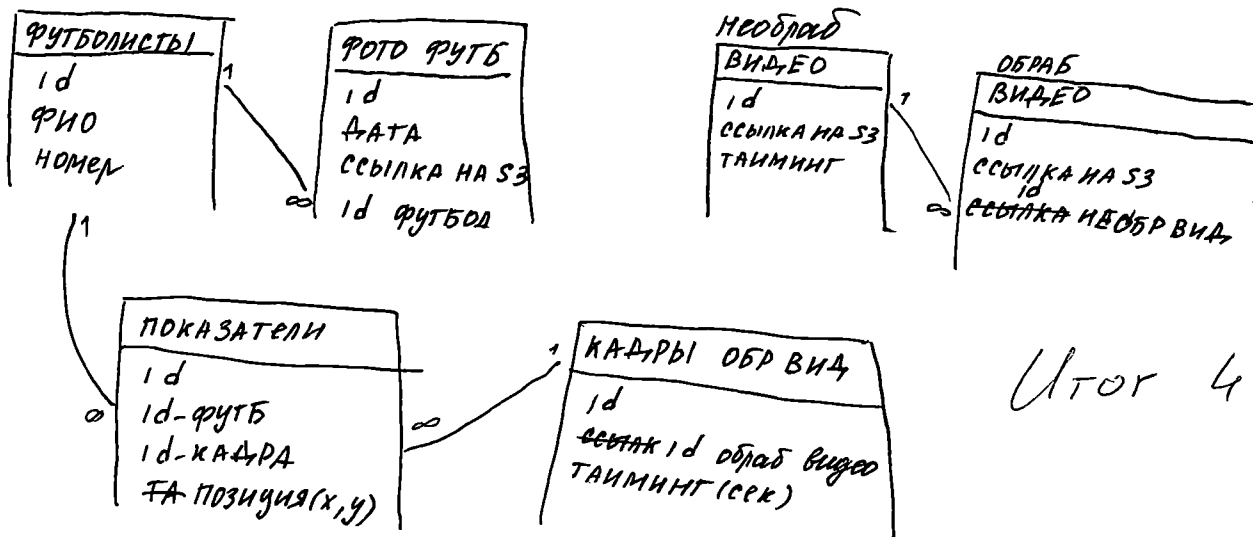 ФУТБОЛИСТЫ
id
ФИО
номер
ФОТО ФУТБ
id
ДАТА
ССЫЛКА НА S3
id ФУТБОЛ
необраб
ВИДЕО
id
ССЫЛКА НА S3
ТАИМИНГ
ОБРАБ
ВИДЕО
id
ССЫЛКА НА S3
id
ССЫЛКА НЕОБР ВИД
1
∞
1
∞
1
∞
ПОКАЗАТЕЛИ
id
id-ФУТБ
id-КАДРА
ТА ПОЗИЦИЯ(x,y)
∞
1
КАДРЫ ОБР ВИД
id
ССЫЛК id обраб видео
ТАИМИНГ (сек)
Итог 4